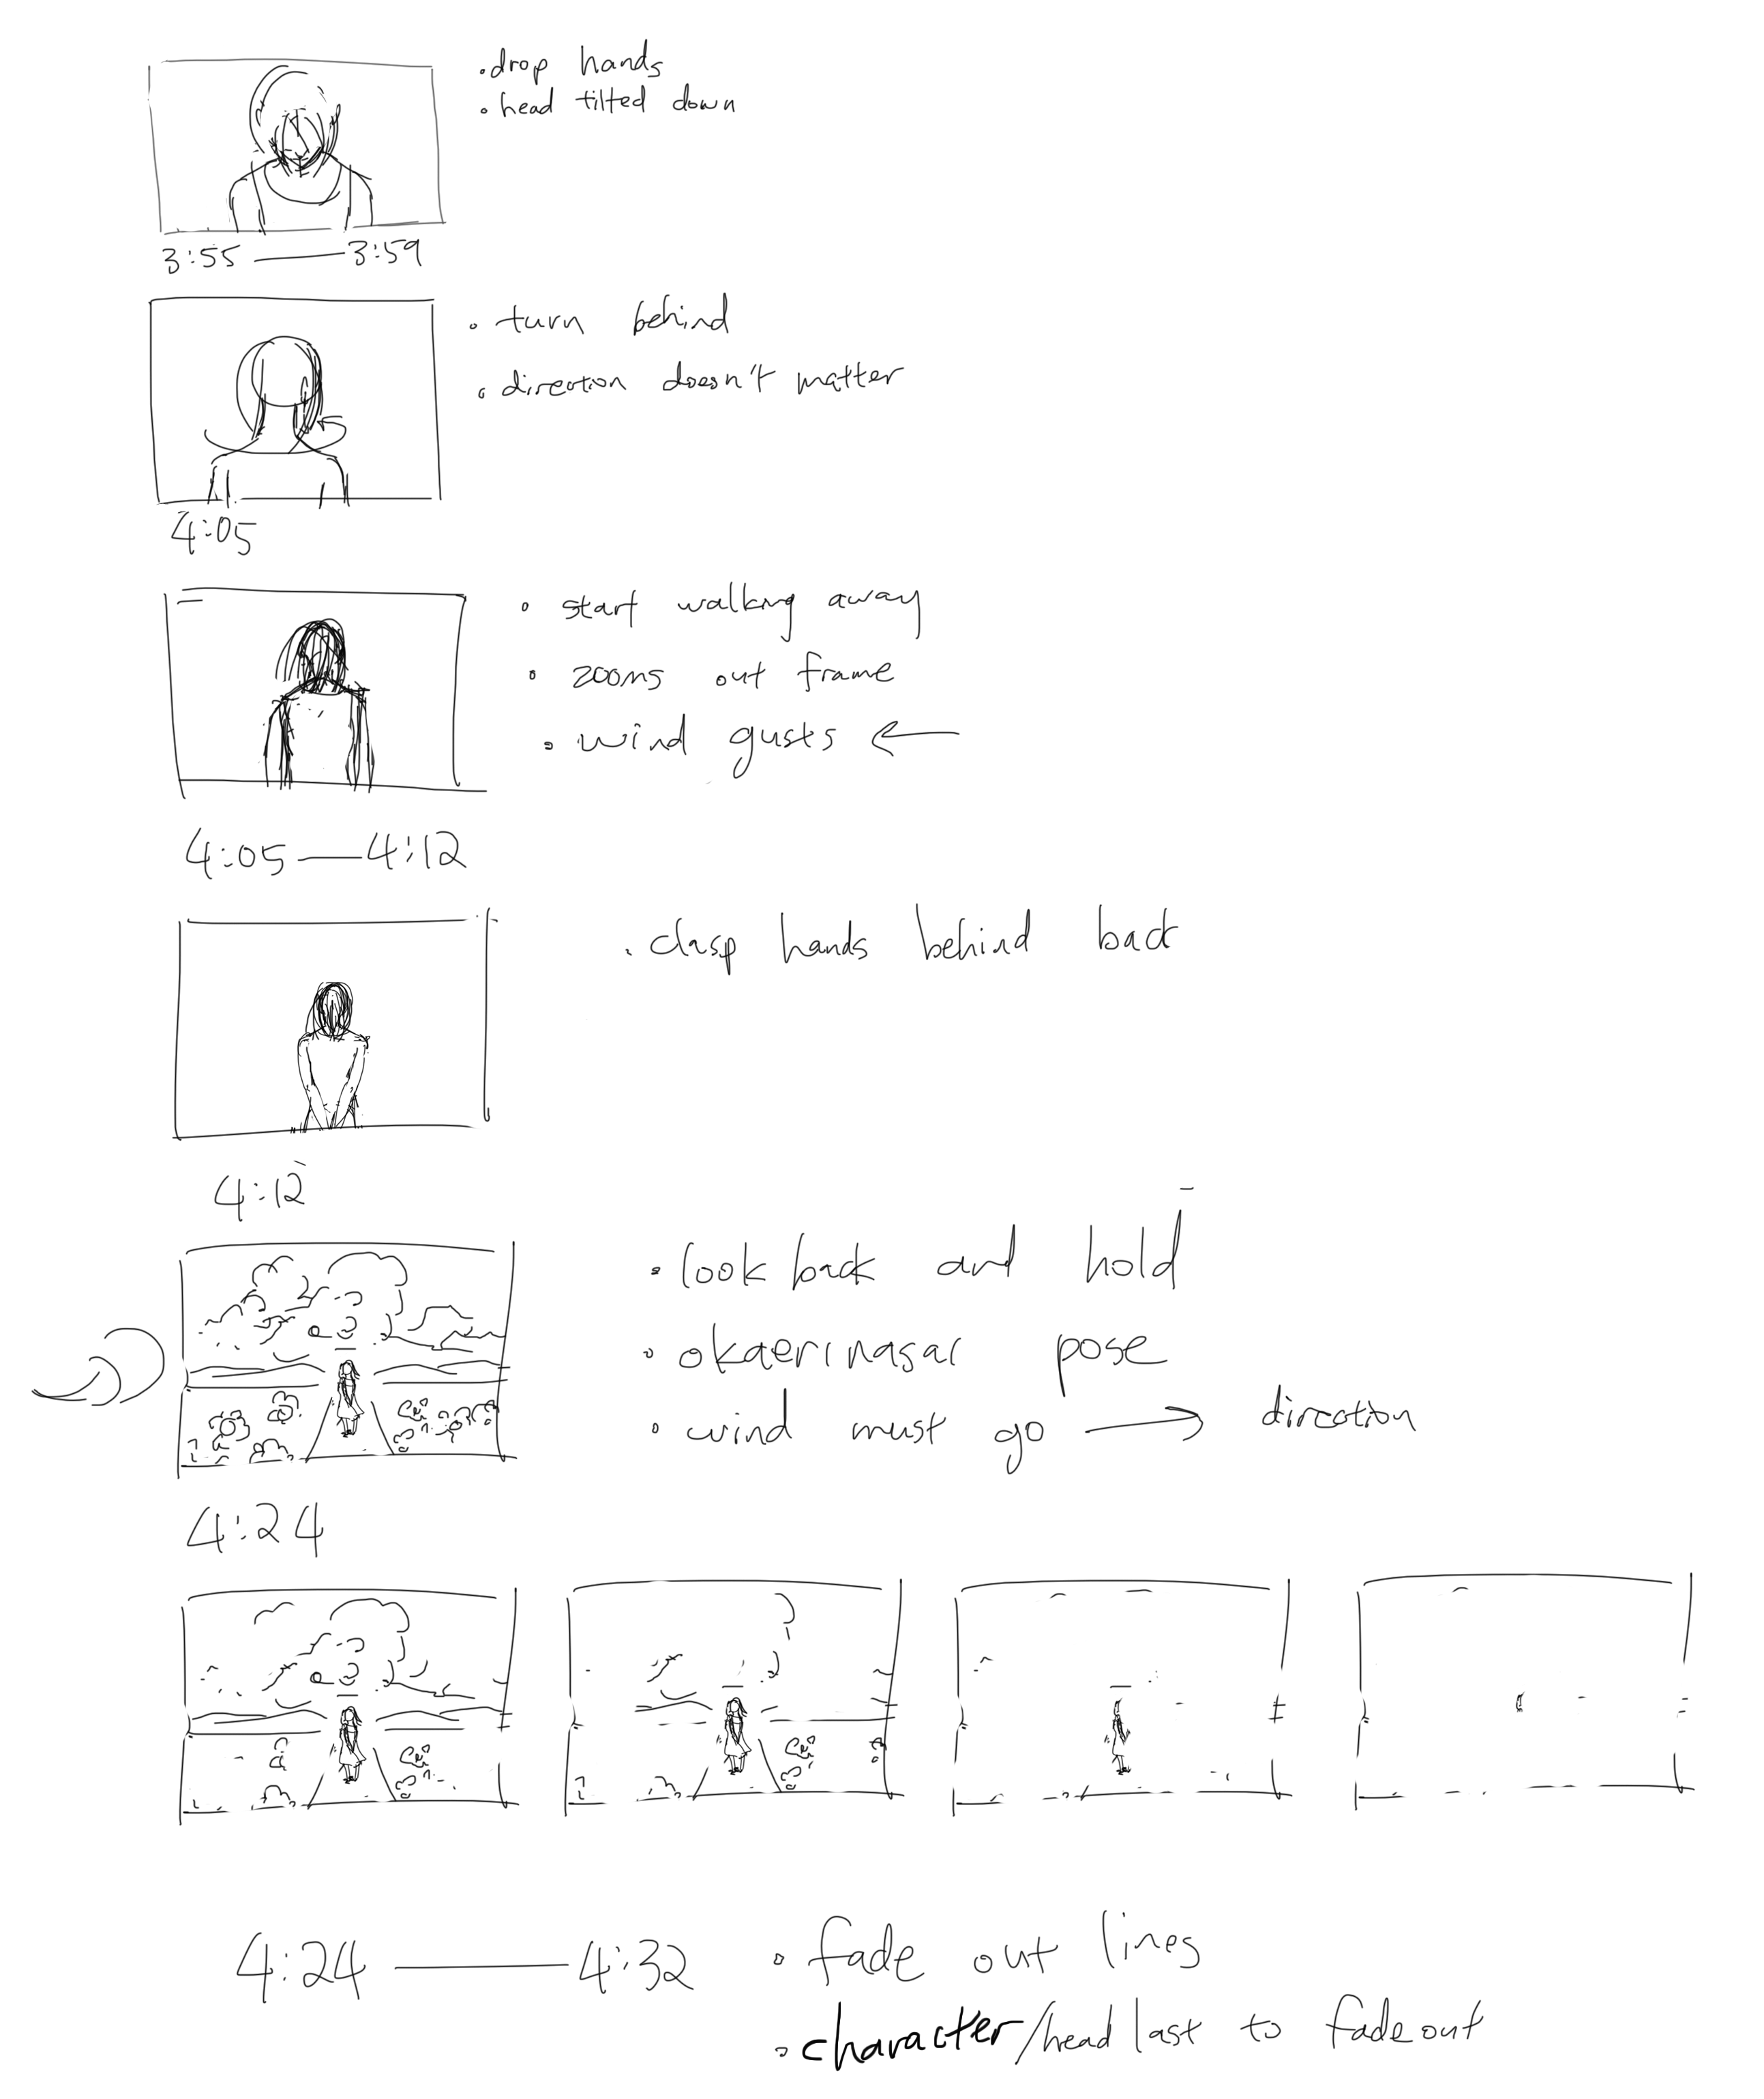 • drop hands
• head tilted down
3:55 — 3:59
• turn behind
• direction doesn't matter
4:05
• start walking away
• zooms out frame
• wind gusts ←
4:05 — 4:12
• clasp hands behind back
4:12
• look back and hold
• okaerinasai pose
• wind must go → direction
4:24
4:24 — 4:32
• fade out lines
• character/head last to fade out